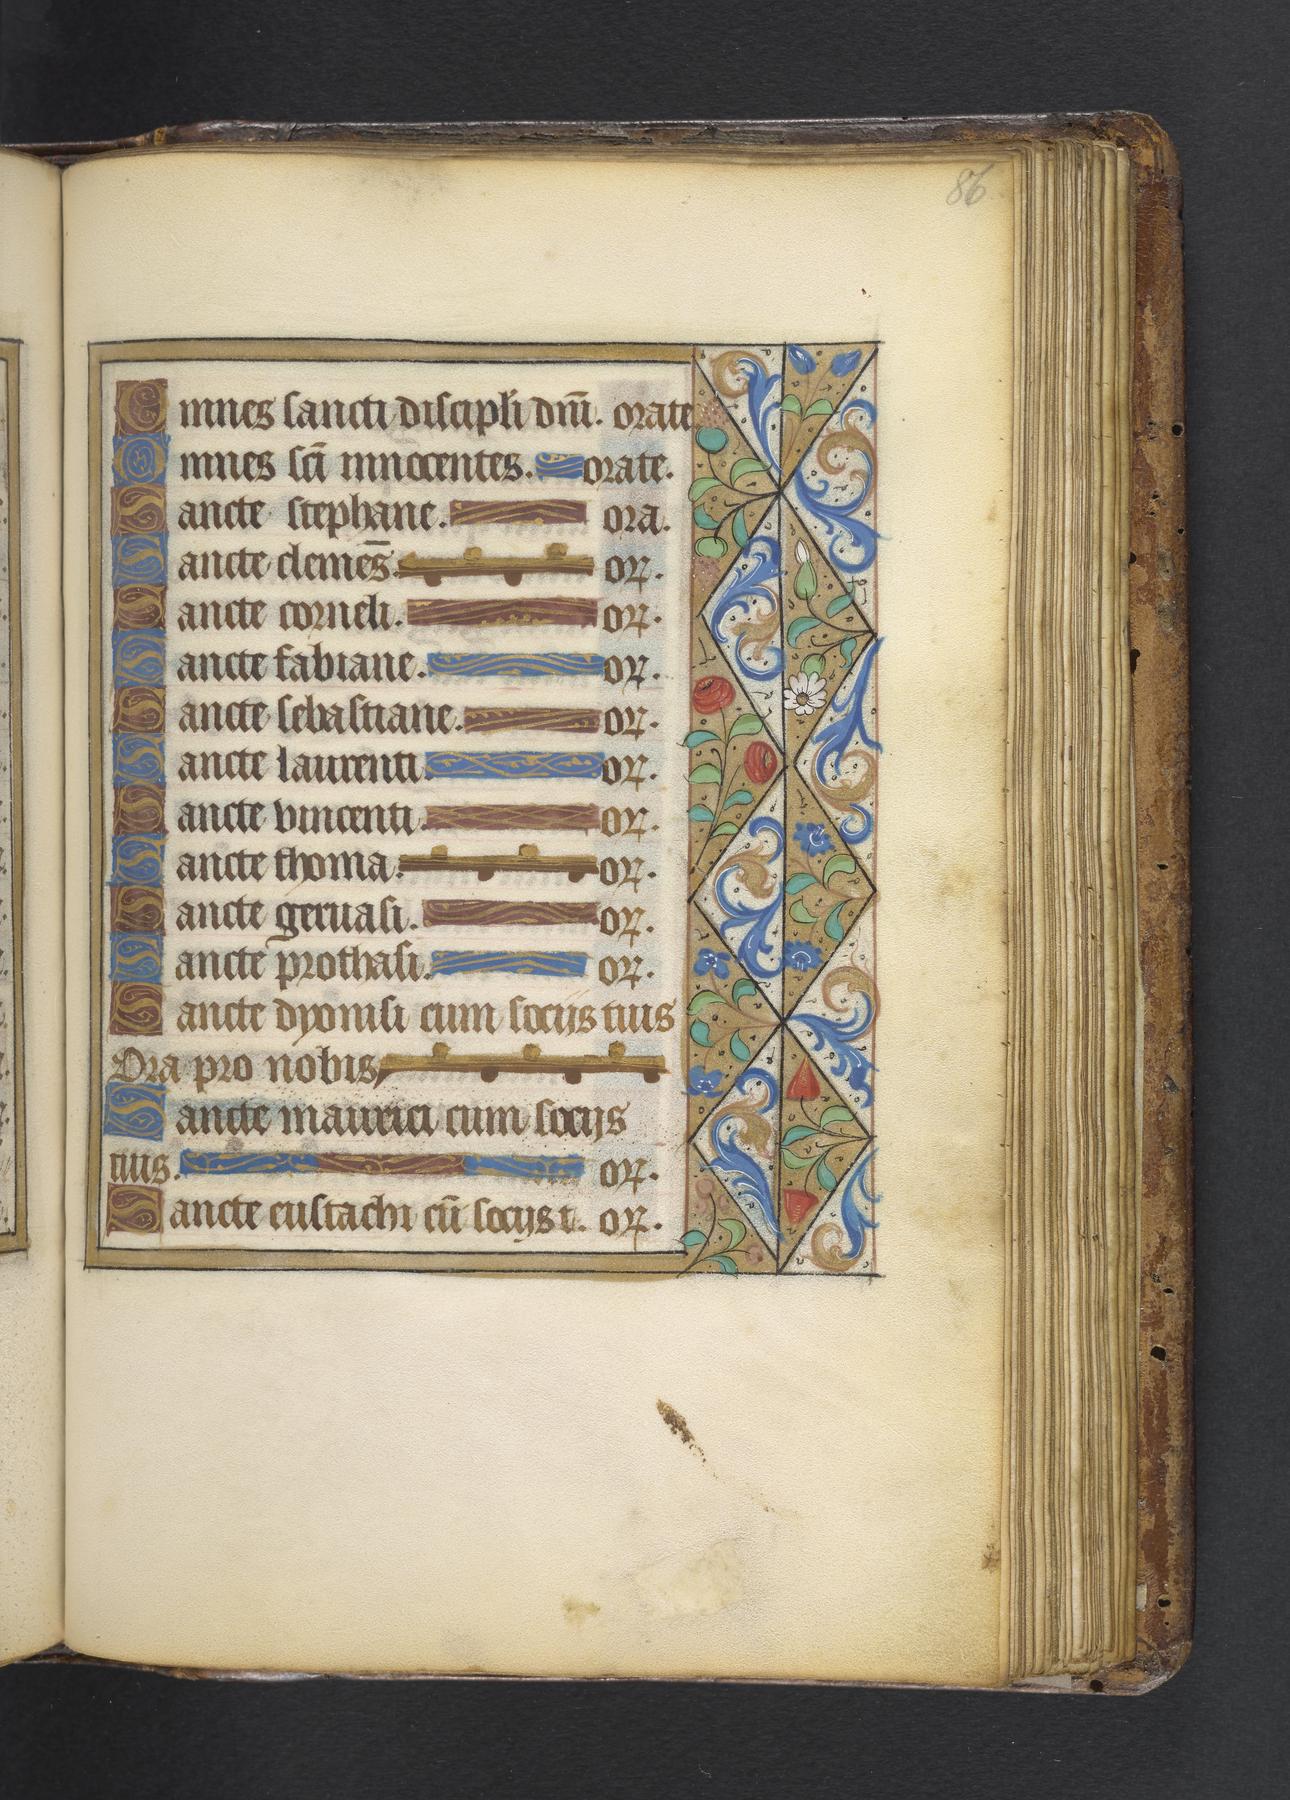 86
Omnes sancti discipli dnī. orate
Omnes scī innocentes. orate.
Sancte stephane. ora.
Sancte clemēs. oꝝ.
Sancte corneli. oꝝ.
Sancte fabiane. oꝝ.
Sancte sebastiane. oꝝ.
Sancte laurenti. oꝝ.
Sancte vincenti. oꝝ.
Sancte thoma. oꝝ.
Sancte geruasi. oꝝ.
Sancte prothasi. oꝝ.
Sancte dyonisi cum socijs tuis
Ora pro nobis
Sancte maurici cum socijs
tuis. oꝝ.
Sancte eustachi cū socijs t. oꝝ.